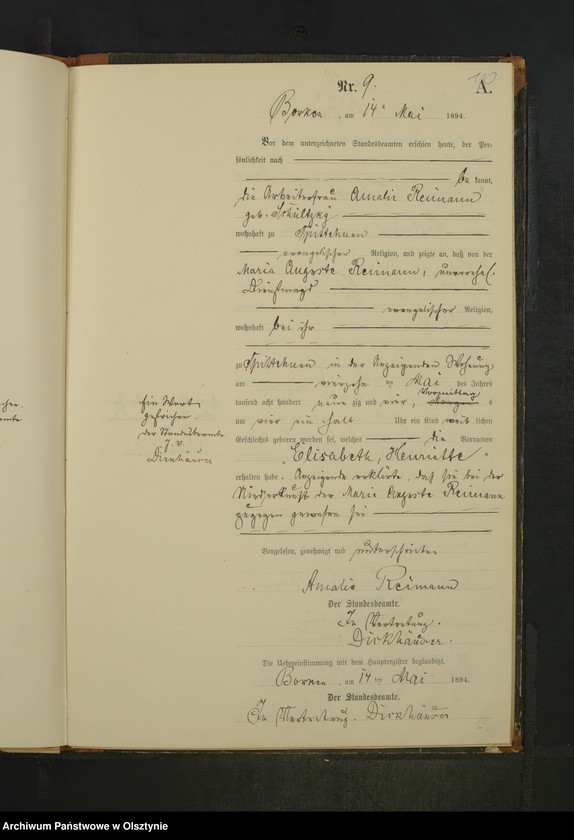 10
Nr. 9. A.
Borken, am 14ten Mai 1894.
Vor dem unterzeichneten Standesbeamten erschien heute, der Per-
sönlichkeit nach
be kannt,
die Arbeiterfrau Amalie Reimann
geb. Schultzky
wohnhaft zu Spittehnen
evangelischer Religion, und zeigte an, daß von der
Maria Auguste Reimann, unverehel.
Dienstmagd
evangelischer Religion,
wohnhaft bei ihr
zu Spittehnen in der Anzeigenden Wohnung
am vierzehn ten Mai des Jahrs
tausend acht hundert neun zig und vier, Vormittag s
um vier ein halb Uhr ein Kind weib lichen
Geschlechts geboren worden sei, welches die Vornamen
„Elisabeth, Henriette"
erhalten habe. Anzeigende erklärte, daß sie bei der
Niederkunft der Maria Auguste Reimann
zugegen gewesen sei
Ein Wort
gestrichen
der Standesbeamte
J. V.
Dirkhäuser
Vorgelesen, genehmigt und unterschrieben
Amalie Reimann
Der Standesbeamte.
In Vertretung.
Dirkhäuser.
Die Uebereinstimmung mit dem Hauptregister beglaubigt.
Borken, am 14 ten Mai 1894.
Der Standesbeamte.
In Vertretung. Dirkhäuser
Archiwum Państwowe w Olsztynie